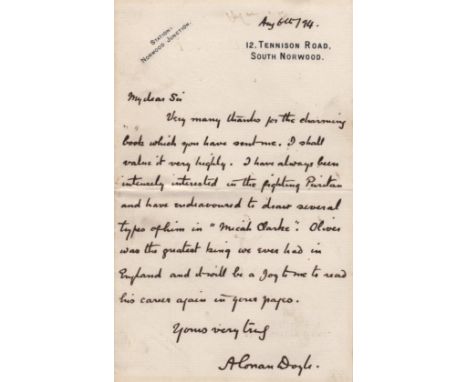 Aug 6th/94.
STATION:
NORWOOD JUNCTION.
12, TENNISON ROAD,
SOUTH NORWOOD.
My dear Sir
Very many thanks for the charming
book which you have sent me. I shall
value it very highly. I have always been
intensely interested in the fighting Puritan
and have endeavoured to draw several
types of him in "Micah Clarke". Oliver
was the greatest king we ever had in
England and it will be a joy to me to read
his career again in your pages.
Yours very truly
A Conan Doyle.